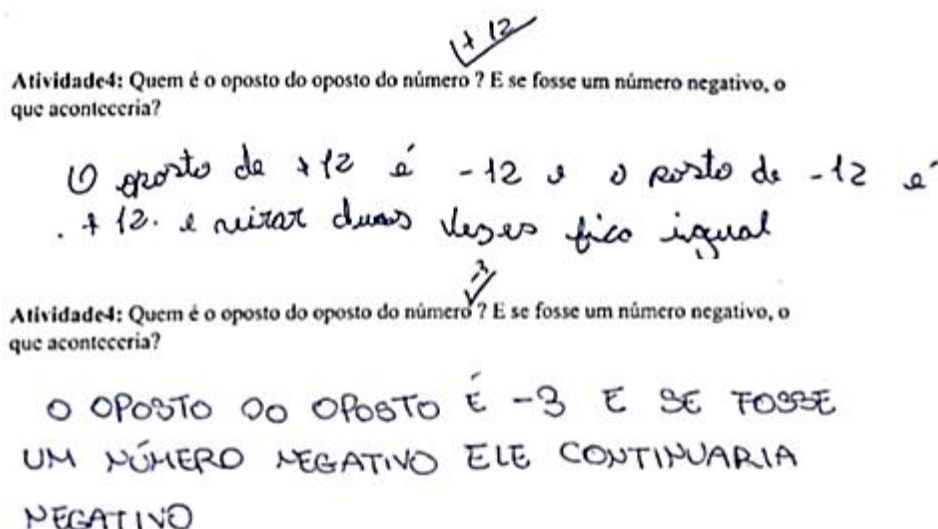 + 12
Atividade4: Quem é o oposto do oposto do número ? E se fosse um número negativo, o
que aconteceria?
O oposto de +12 é -12 e o posto de -12 é
. + 12. e duas vezes fico igual
-3
Atividade4: Quem é o oposto do oposto do número ? E se fosse um número negativo, o
que aconteceria?
O OPOSTO DO OPOSTO É -3 E SE FOSSE
UM NÚMERO NEGATIVO ELE CONTINUARIA
NEGATIVO